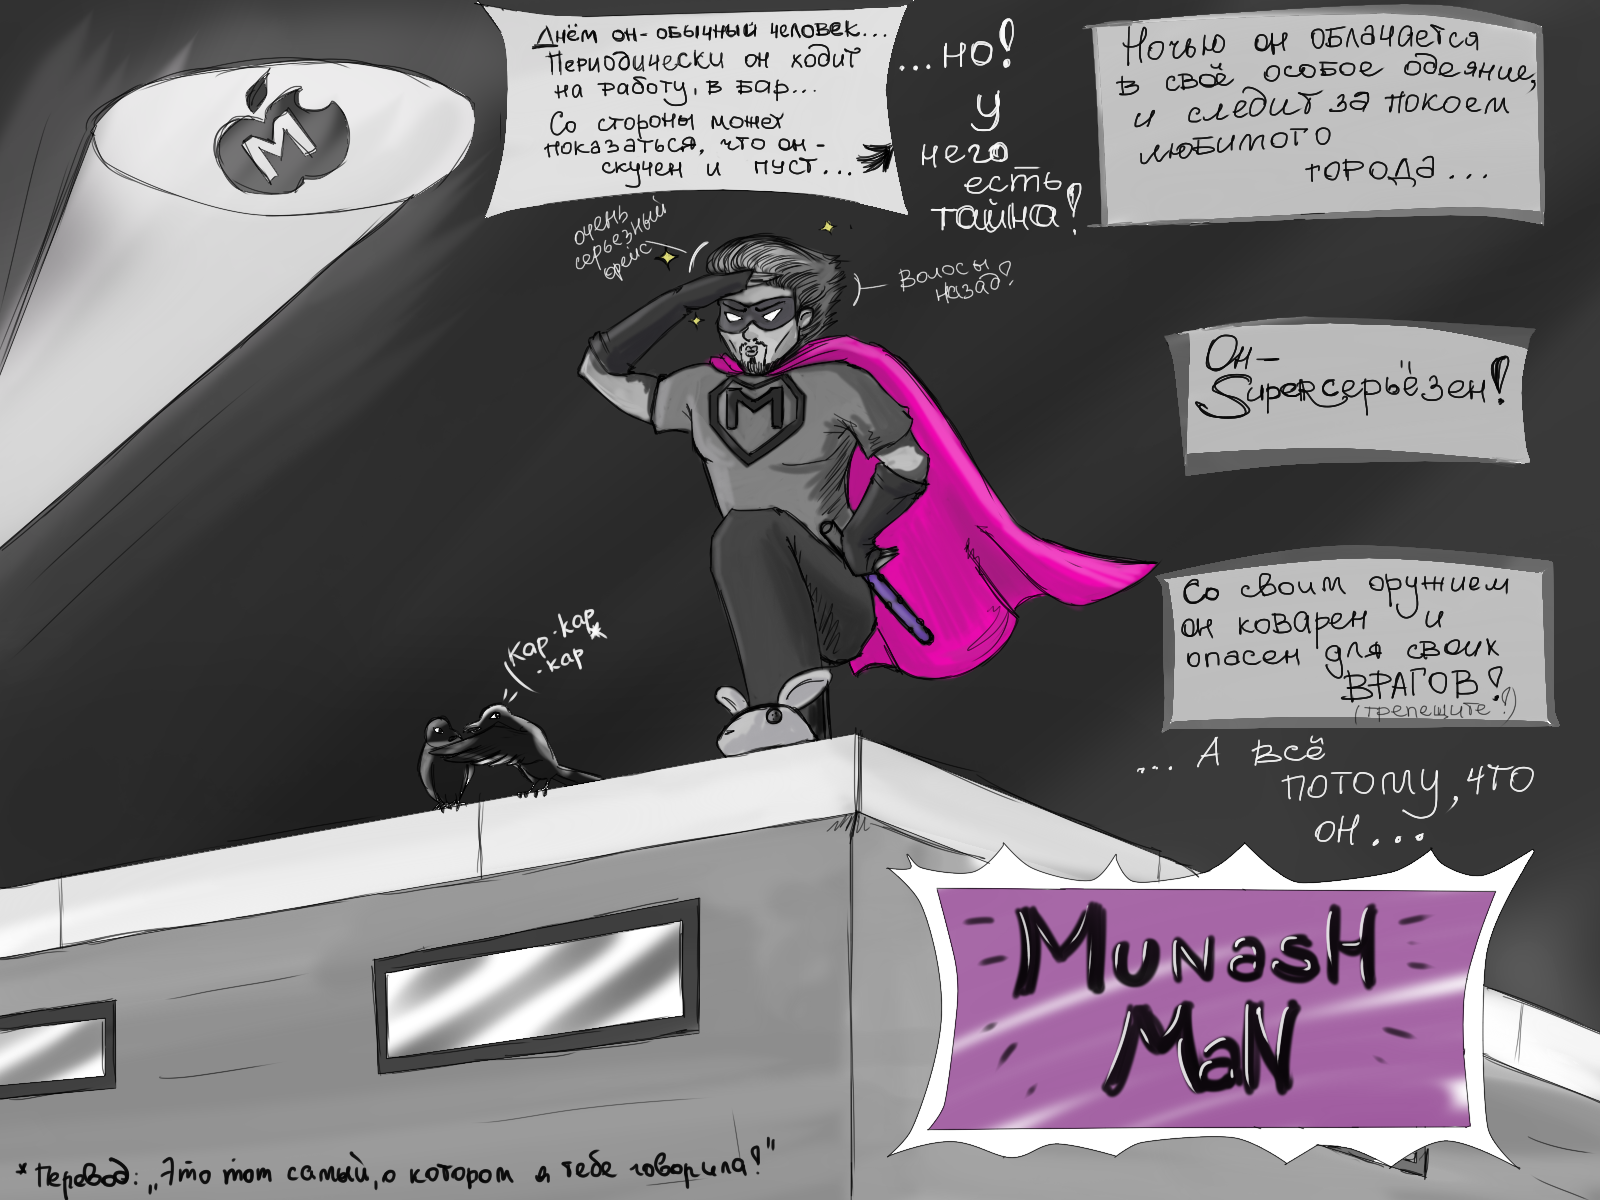 Днём он - обычный человек...
Периодически он ходит
на работу, в бар...
Со стороны может
показаться, что он -
скучен и пуст...
...но!
У
него
есть
тайна!
Ночью он облачается
в своё особое одеяние,
и следит за покоем
любимого
города...
M
очень
серьёзный
фейс
Волосы
назад!
M
Он -
Superсерьёзен!
Со своим оружием
он коварен и
опасен для своих
ВРАГОВ!
(трепещите!)
Кар-кар*
-кар
... А всё
потому, что
он...
Munash
Man
*Перевод: „Это тот самый, о котором я тебе говорила!"